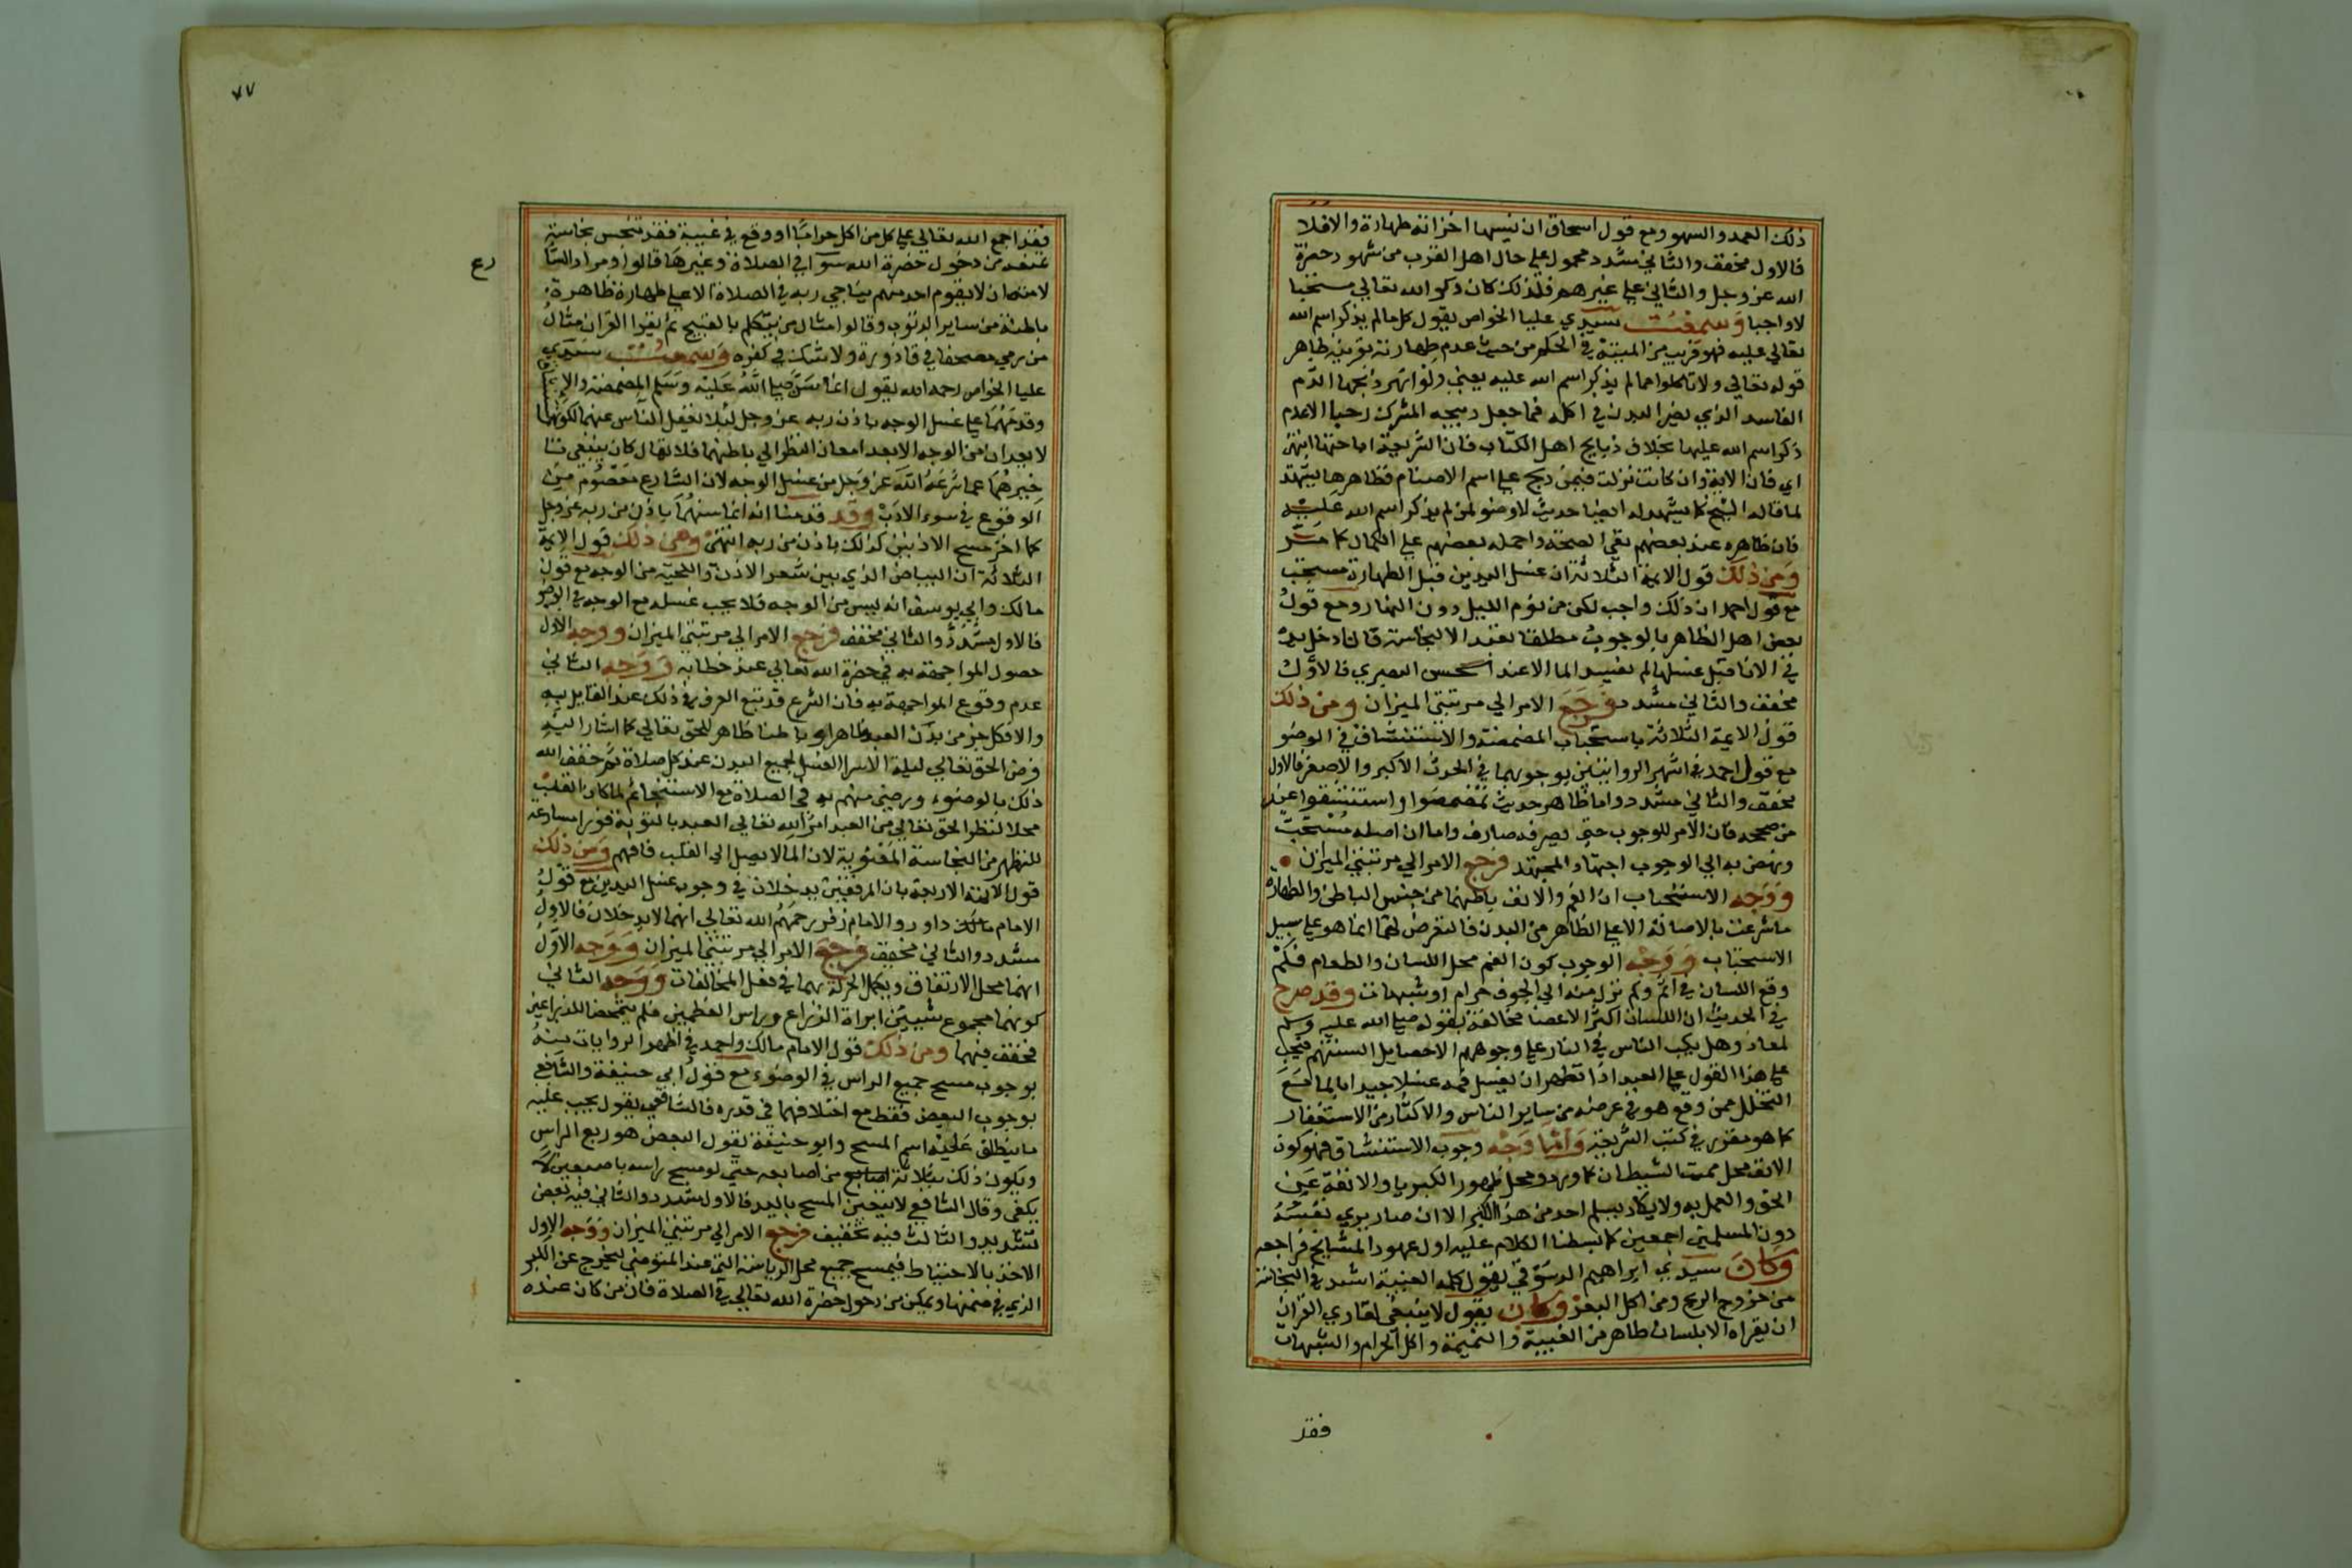 ذلك العمد والسهو ومع قول اسحاق ان نسيها اخزاته طهارة والافلا
فالاول مخفف والثاني مشدد محمول علي حال اهل القرب من شهود حضرة
الله عز وجل والثاني علي غيرهم فلذلك كان ذكر الله تعالي مستحبا
لا واجبا وسمعت سيدي عليا الخواص يقول كل ما لم يذكر اسم الله
تعالي عليه فهو قريب من الميتة في الحكم من حيث عدم طهارته بقرينة ظاهر
قوله تعالي ولا تاكلوا مما لم يذكر اسم الله عليه يعني ولو انهر ذبحها الدم
الفاسد الذي يضر البدن في اكله فما جعل ذبيحه المشرك رجسا الا عدم
ذكر اسم الله عليها بخلاف ذبايح اهل الكتاب فان الشريعة اباحتها انتهي
اي فان الاية وان كانت نزلت فيمن ذبح علي اسم الاصنام فظاهرها يشهد
لما قاله الشيخ كما يشهد له ايضا حديث لا وضو لمن لم يذكر اسم الله عليه
فان ظاهره عند بعضهم نفي الصحة واحمله بعضهم علي الكمال كما مر
ومن ذلك قول الايمة الثلاثة ان غسل اليدين قبل الطهارة مستحب
مع قول احمد ان ذلك واجب لكن من نوم الليل دون النهار ومع قول
بعض اهل الظاهر بالوجوب مطلقا تعبدا لا لنجاسة فان ادخل يده
في الانا قبل غسلها لم يفسد الما الا عند الحسن البصري فالاول
مخفف والثاني مشدد فرجع الامر الي مرتبتي الميزان ومن ذلك
قول الايمة الثلاثة باستحباب المضمضة والاستنشاق في الوضو
مع قول احمد في اشهر الروايتين بوجوبهما في الحدث الاكبر والاصغر فالاول
مخفف والثاني مشدد واما ظاهر حديث تمضمضوا واستنشقوا عند
من صححه فان الامر للوجوب حتي يصرفه صارف واما ان اصله مستحب
ونهض به الي الوجوب اجتهاد المجتهد فرجع الامر الي مرتبتي الميزان
ووجه الاستحباب ان الفم والانف باطنهما من جنس الباطن والطهارة
ما شرعت بالاصالة الا علي الظاهر من البدن فالتعرض لهما انما هو علي سبيل
الاستحباب ووجه الوجوب كون الفم محل اللسان والطعام فكم
وقع اللسان في اثم وكم نزل منه الي الجوف حرام او شبهات وقد صرح
في الحديث ان اللسان اكثر الاعضا مخالفة بقوله صلي الله عليه وسلم
لمعاذ وهل يكب الناس في النار علي وجوههم الا حصايد السنتهم فيجب
علي هذا القول علي العبد اذا تطهر ان يغسل فمه غسلا جيدا بالما مع
التحلل ممن وقع هو في عرضه من ساير الناس والاكثار من الاستغفار
كما هو مقرر في كتب الشريعة واما وجه وجوب الاستنشاق فهو كون
الانف محل مبيت الشيطان كما ورد ومحل ظهور الكبريا والانفة عن
الحق والعمل به ولا يكاد يسلم احد من هذا الكبر الا ان صار يري نفسه
دون المسلمين اجمعين كما بسطنا الكلام عليه اول عهود المشايخ فراجعه
وكان سيدي ابراهيم الدسوقي يقول كلمة الغيبة اشد في النجاسة
من خروج الريح ومن اكل البعر وكان يقول لا ينبغي لقاري القران
ان يقراه الا بلسان طاهر من الغيبة والنميمة واكل الحرام والشبهات
فقد
٧٧
فقد اجمع الله تعالي علي كل من اكل حراما او وقع في غيبة فقد تنجس نجاسة
تمنعه من دخول حضرة الله سوا في الصلاة وغيرها قالوا ومراد الشا
لامته ان لا يقوم احد منهم يناجي ربه في الصلاة الا علي طهارة ظاهرة
باطنة من ساير الذنوب وقالوا مثال من يتكلم بالقبيح ثم يقرا القران مثال
من رمي مصحفا في قاذورة ولا شك في كفره وسمعت سيدي
عليا الخواص رحمه الله يقول انما سن صلي الله عليه وسلم المضمضة والا
وقدمهما علي غسل الوجه باذن ربه عز وجل ليلا يغفل الناس عنهما لكونهما
لا يعدان من الوجه الا بعد امعان النظر الي باطنهما فلا يقال كان ينبغي تا
خيرهما عما شرعه الله عز وجل من غسل الوجه لان الشارع معصوم من
الوقوع في سوء الادب وقد قدمنا انه انما سنهما باذن من ربه عز وجل
كما اخر مسح الاذنين كذلك باذن من ربه انتهي ومن ذلك قول الايمة
الثلاثة ان البياض الذي بين شعر الاذن واللحية من الوجه مع قول
مالك وابي يوسف انه ليس من الوجه فلا يجب غسله مع الوجه في الوضو
فالاول مشدد والثاني مخفف فرجع الامر الي مرتبتي الميزان ووجه الاول
حصول المواجهة به في حضرة الله تعالي عند خطابه ووجه الثاني
عدم وقوع المواجهة به فان الشرع قد تبع العرف في ذلك عند القايل به
والا فكل جز من بدن العبد ظاهرا وباطنا ظاهر للحق تعالي كما اشار اليه
فرض الحق تعالي ليلة الاسرا الغسل لجميع البدن عند كل صلاة ثم خفف الله
ذلك بالوضوء ورضي منهم به في الصلاة مع الاستنجا ثم لما كان القلب
محلا لنظر الحق تعالي من العبد امر الله تعالي العبد بالتوبة فورا مسارعة
للتطهر من النجاسة المعنوية لان الما لا يصل الي القلب فافهم ومن ذلك
قول الايمة الاربعة بان المرفقين يدخلان في وجوب غسل اليدين مع قول
الامام داود والامام زفر رحمهم الله تعالي انهما لا يدخلان فالاول
مشدد والثاني مخفف فرجع الامر الي مرتبتي الميزان ووجه الاول
انهما محل الارتفاق وبكمل الحركة بهما في فعل المخالفات ووجه الثاني
كونهما مجموع شيئين ابراة الذراع وراس العظمين فلم يتمحضا للذراعين
فخفف فيهما ومن ذلك قول الامام مالك واحمد في اظهر الروايات عنه
بوجوب مسح جميع الراس في الوضوء مع قول ابي حنيفة والشافعي
بوجوب البعض فقط مع اختلافهما في قدره فالشافعي يقول يجب عليه
ما ينطلق عليه اسم المسح وابو حنيفة يقول البعض هو ربع الراس
ويكون ذلك بثلاثة اصابع من اصابعه حتي لو مسح راسه باصبعين لا
يكفي وقال الشافعي لا يتعين المسح باليد فالاول مشدد والثاني فيه بعض
تشديد والثالث فيه تخفيف فرجع الامر الي مرتبتي الميزان ووجه الاول
الاخذ بالاحتياط فيمسح جميع محل الرياسة التي عند المتوضي ليخرج عن الكبر
الذي في ضمنها ويمكن من دخول حضرة الله تعالي في الصلاة فان من كان عنده